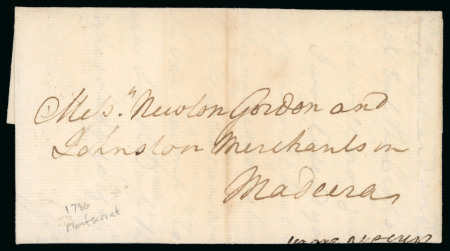 Mess.rs Newton Gordon and
Johnston Merchants in
Madeera
1786
Montserrat